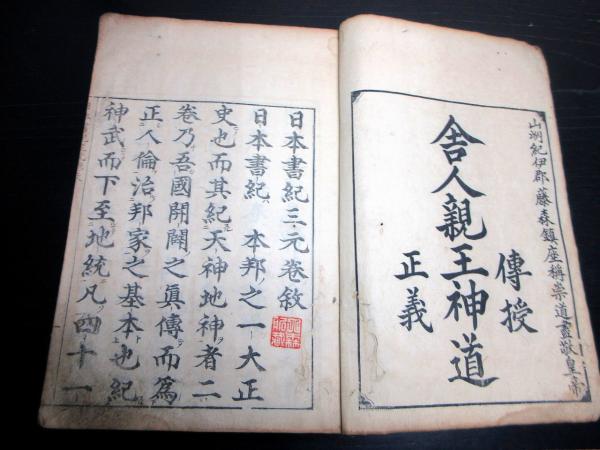 山州紀伊郡藤森鎮座称崇道盡敬皇帝
舎人親王神道
傳授
正義
日本書紀三元巻敘
日本書紀本邦之一大正
史也而其紀天神地神者二
巻乃吾國開闢之眞傳而為
正人倫治邦家之基本也紀
神武而下至地統凡四十一